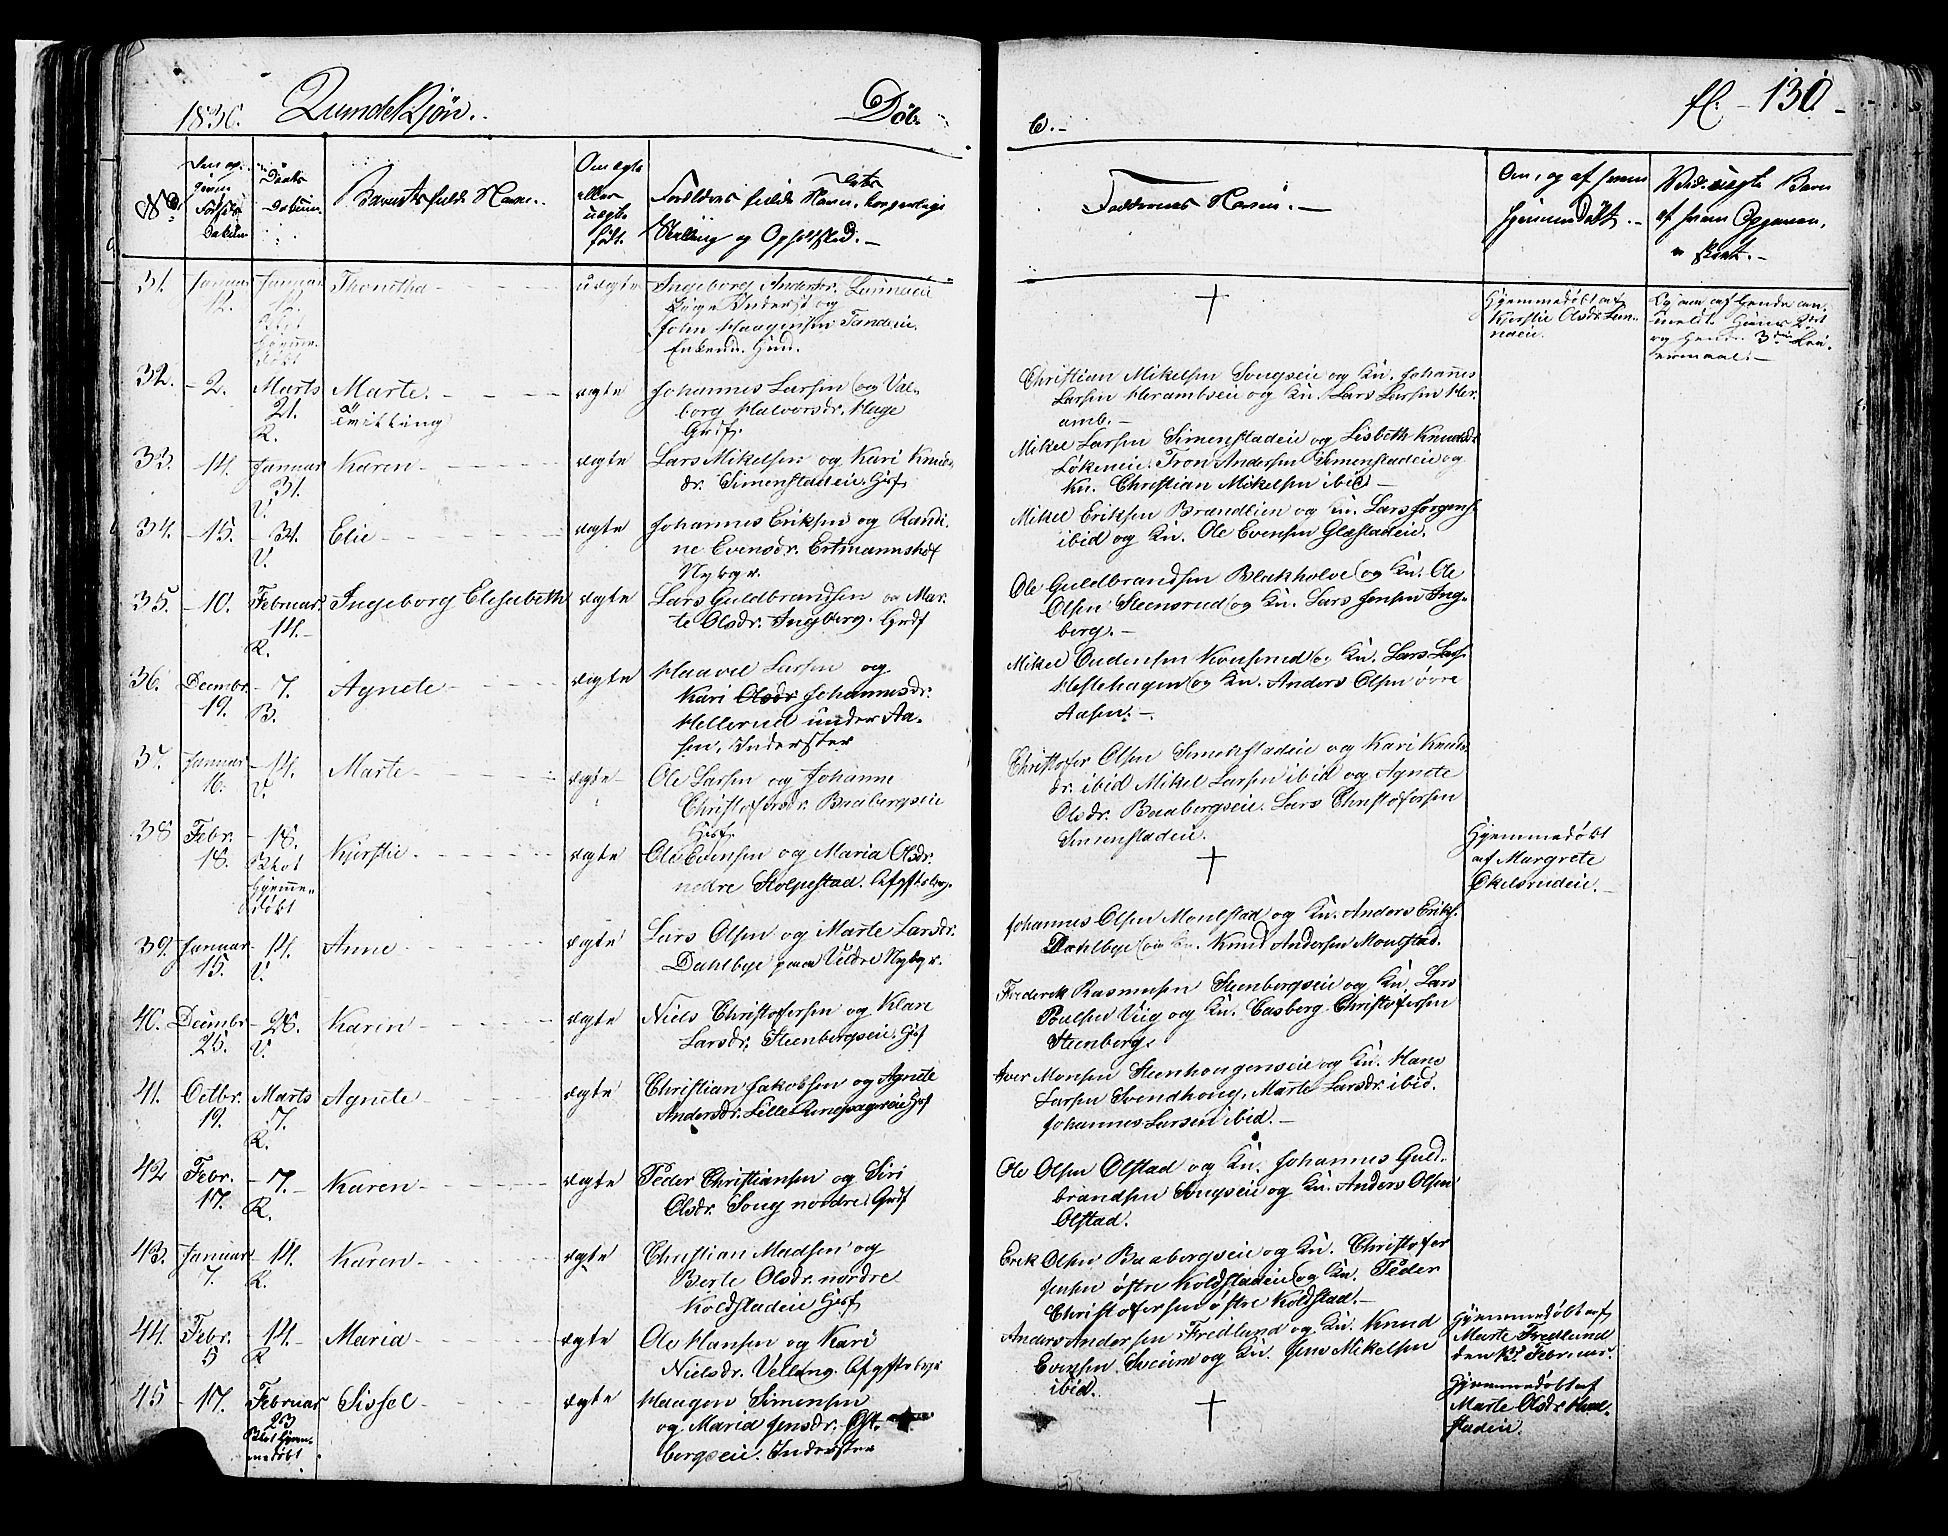 1830. Qvindekjøn. Døb-
e.-
fl. - 130.
No.
Den op-
given
Fødsels
Datum
Daabs
Datum
Barnets fulde Navn.
Om ægte
eller
uægte
født.
Forældres fulde Navn, borgerlige
Stilling og Opholdsted.-
Faddernes Navne.-
Om, og af hvem
hjemmedøbt.-
Ved uægte Børn
af hvem
31. Januar
12.
Januar
12.
hjemme-
døbt
Thonetha
uægte
Ingeborg Andersdr.
og
John Haagensen
Enkem.
Hjemmedøbt af
Kjerstie Olsdr.
32. - 2. Marts
21.
R.
Marte.
Tvilling
ægte
Johannes Larsen og Val-
borg Halvorsdr. Hage
Grdf.
Christian Mikelsen Songseie og Kv. Johannes
Larsen Herambseie og Kv. Lars Larsen Her-
amb.-
33. - 14. Januar
31.
V.
Karen
ægte
Lars Mikelsen og Kari Knuds-
dr. Simenstadeie. Husf.
Mikel Larsen Simenstadeie og Lisbeth Knudsdr.
Løkeneie. Tron Andersen Simenstadeie og
Kv. Christian Mikelsen ibid -
34. - 15. - 31.
V.
Elie
ægte
Johannes Eriksen og Randi-
ne Evensdr.
Nybygr.
Mikel Eriksen Brændlien og Kv. Lars Jørgens.
ibid og Kv. Ole Evensen Glæstadeie.
35. - 10. Februar
14.-
R.
Ingeborg Elisabeth
ægte
Lars Guldbrandsen og Mar-
te Olsdr. Ingberg. Grdf
Ole Guldbrandsen og Kv. Ole
Olsen Steensrud og Kv. Lars Jensen Ing-
berg.-
36. Decembr.
19.
- 7.
B.
Agnete
ægte
Haavel Larsen og
Kari Olsdr Johannesdr.
Hellerud under Aa-
sen. Inderster
Mikel og Kv. Lars Lars.
Heslehagen og Kv. Anders Olsen øvre
Aasen.-
37. Januar
16.
- 14.
V.
Marte
ægte
Ole Larsen og Johanne
Christofersdr. Baabergseie
Husf.
Christofer Olsen Simenstadeie og Kari Knuds-
dr. ibid Mikel Larsen ibid og Agnete
Olsdr. Baabergseie. Lars Christofersen
Simenstadeie.
38 Febr.
18.
- 18.
hjemme-
døbt
Kjerstie
ægte
Ole Evensen og Maria Olsdr.
nedre Stolpestad.
Hjemmedøbt
af Margrete
Økelsrudeie.
39. Januar
15.
- 14.
V.
Anne
ægte
Lars Olsen og Marte Larsdr.
Dahlbye paa Veldre Nybygr.
Johannes Olsen Moulstad og Kv. Anders Eriks.
Dahlbye og Kv. Knud Andersen Moulstad.
40. Decembr.
25.
- 28.
V.
Karin
ægte
Niels Christofersen og Klare
Larsdr. Steenbergseie. Husf
Frederek Rasmusen Steenbergseie og Kv. Lars
Poulsen og Kv. Casberg Christofersen
Steenberg.
41. Octbr.
19.
Marts
7.
R.
Agnete
ægte
Christian Jakobsen og Agnete
Andersdr. Husf
Iver Monsen Steenhougenseie og Kv. Hans
Larsen Svendhoug, Marte Larsdr. ibid.
Johannes Larsen ibid.-
42 Febr.
17.
- 7.
R.
Karen
ægte
Peder Christiansen og Siri
Olsdr. Song nordre. Grdf
Ole Olsen Olstad og Kv. Johannes Guld-
brandsen Songseie og Kv. Anders Olsen
Olstad.
43. Januar
7.
- 14.
R.
Karen
ægte
Christian Madsen og
Berte Olsdr. nordre
Koldstadeie Husf
Erek Olsen Baabergseie og Kv. Christofer
Jensen østre Koldstadeie og Kv. Peder
Christofersen østre Koldstad.-
44. Febr.
5
- 14.
R
Maria
ægte
Ole Hansen og Kari
Nielsdr. Vellang.
Anders Andersen Fredlund og Kv. Knud
Evensen Sveum og Kv. Jens Mikelsen
ibid.
Hjemmedøbt af
Marte Fredlund
den 13. Februar.
45 - 17. Februar
23
hjem-
medøbt
Sissel
ægte
Haagen Simensen
og Maria Jensdr.
bergseie. Inderster
Hjemmedøbt af
Marte Olsdr.
stadeie.